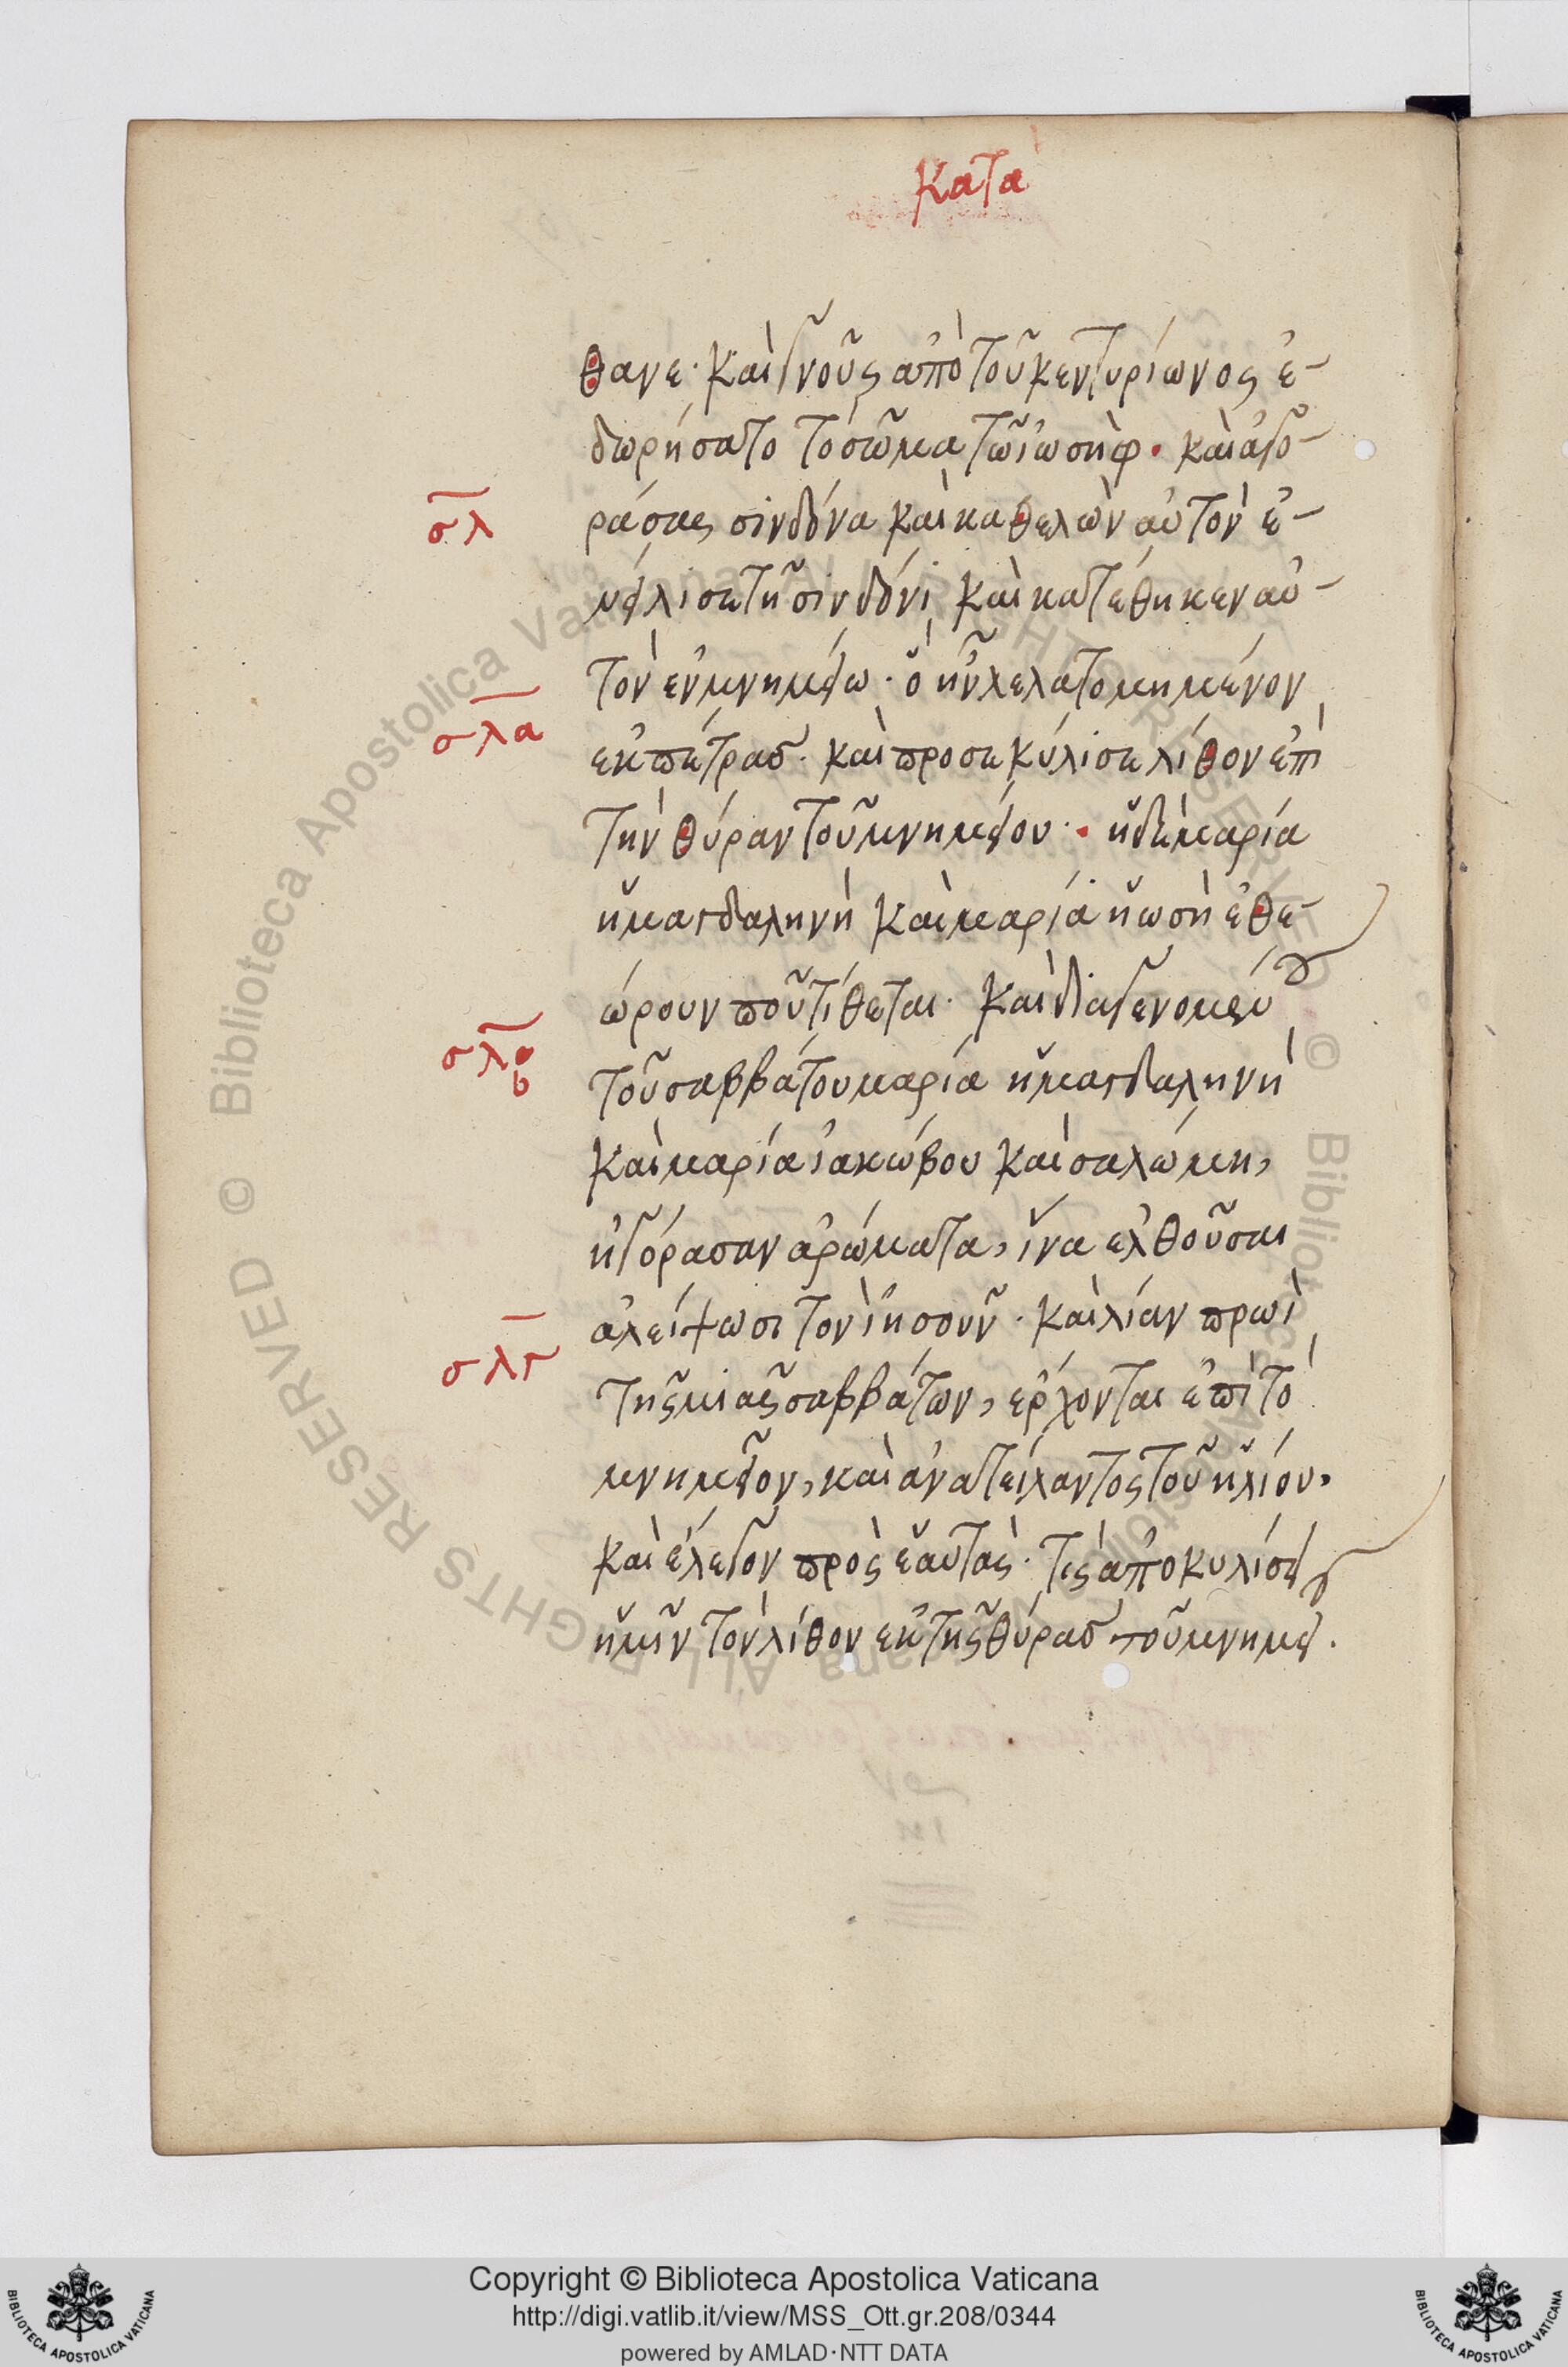 κατὰ
θανε· καὶ γνοῦς ἀπὸ τοῦ κεντυρίωνος ἐ-
δωρήσατο τὸ σῶμα τῷ ἰωσὴφ· καὶ ἀγο-
σλ
ράσας σινδόνα καὶ καθελὼν αὐτὸν ἐ-
νείλισε τῆ σινδόνι καὶ κατέθηκεν αὐ-
τὸν ἐν μνημείω· ὃ ἦν λελατομημένον
σλα
ἐκ πέτρας· καὶ προσεκύλισε λίθον ἐπὶ
τὴν θύραν τοῦ μνημείου· ἡ δὲ μαρία
ἡ μαγδαληνὴ καὶ μαρία ἡ ἰωσῆ ἐθε-
ώρουν ποῦ τίθεται· καὶ διαγενομένου
σλβ
τοῦ σαββάτου μαρία ἡ μαγδαληνὴ
καὶ μαρία ἰακώβου καὶ σαλώμη,
ἠγόρασαν ἀρώματα, ἵνα ἐλθοῦσαι
ἀλείψωσι τὸν ἰησοῦν· καὶ λίαν πρωὶ
σλγ
τῆς μιᾶς σαββάτων, ἔρχονται ἐπὶ τὸ
μνημεῖον, καὶ ἀνατείλαντος τοῦ ἡλίου,
καὶ ἔλεγον πρὸς ἑαυτὰς· τίς ἀποκυλίσει
ἡμῖν τὸν λίθον ἐκ τῆς θύρας τοῦ μνημεί.
© Biblioteca Apostolica Vaticana ALL RIGHTS RESERVED © Biblioteca Apostolica Vaticana ALL RIGHTS RESERVED
Copyright © Biblioteca Apostolica Vaticana
http://digi.vatlib.it/view/MSS_Ott.gr.208/0344
powered by AMLAD·NTT DATA
BIBLIOTECA APOSTOLICA VATICANA
BIBLIOTECA APOSTOLICA VATICANA